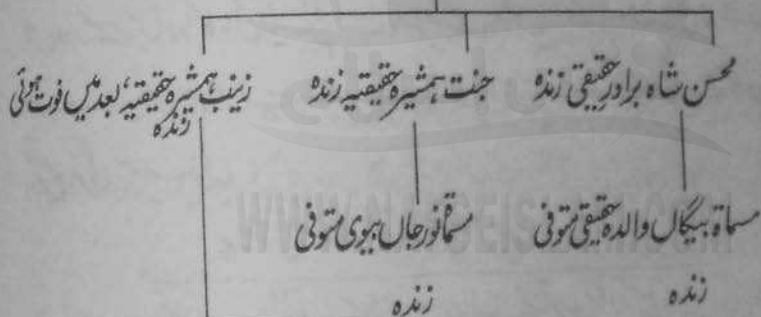 محسن شاہ برادر حقیقی زندہ
جنت ہمشیرہ حقیقتیہ زندہ
زینب ہمشیرہ حقیقیہ، بعد میں فوت ہوئی
زندہ
مسماۃ بیگاں والدہ حقیقی متوفی
مسماۃ نورجاں بیوی متوفی
زندہ
زندہ